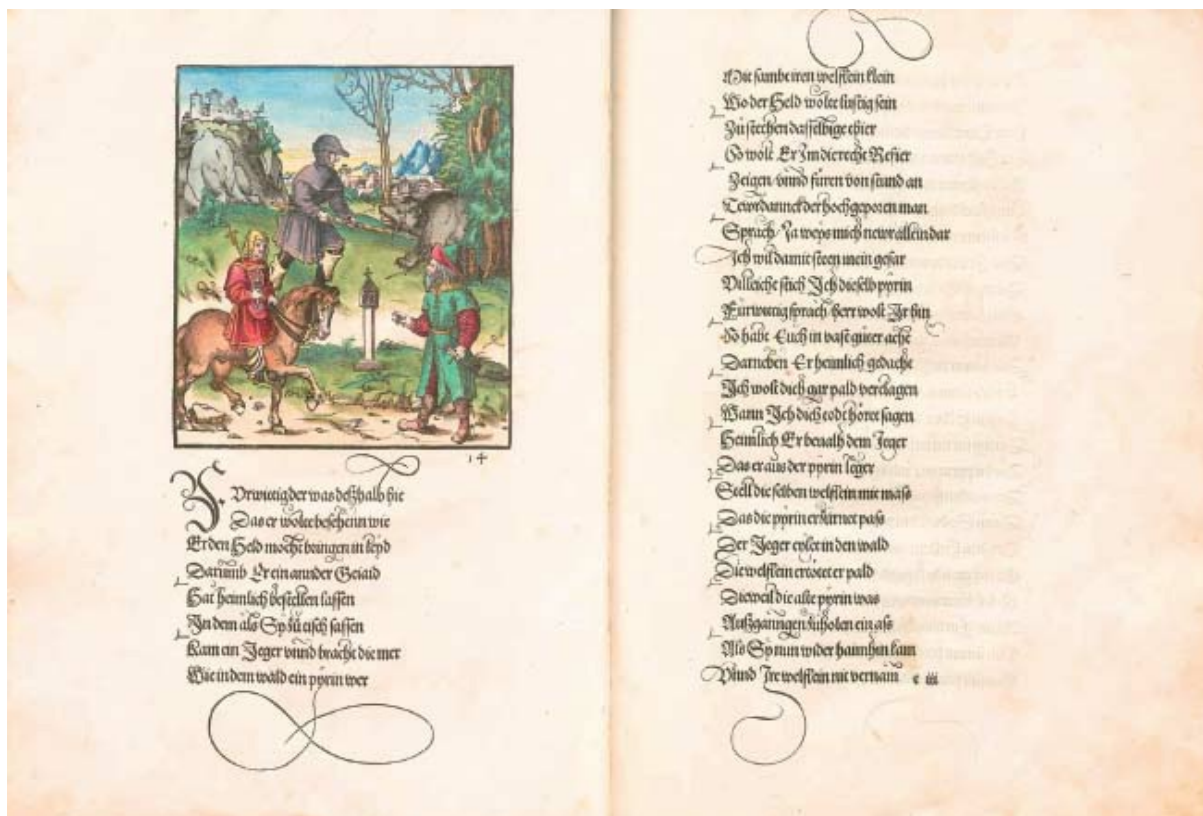 14
Furwittig der was deßhalb hie
Das er wolte besehenn wie
Er den Held mocht bringen in leyd
Darumb Er ein annder Geiaid
Hat heimlich bestellen lassen
In dem als Sy zu tisch sassen
Kam ein Jeger vnnd bracht die mer
Wie in dem wald ein pyrin wer
Mit sambt iren welflein klein
Wo der Held wolte lustig sein
Zů stechen dasselbige thier
So wolt Er Im die recht Refier
Zeigen vnnd füren von stund an
Tewrdannck der hochgeporen man
Sprach Ja weys mich newr allein dar
Ich wil damit steen mein gefar
Villeicht stich Ich dieselb pyrin
Fürwittig sprach herr wolt Ir hin
So habt Euch in vast guter acht
Darneben Er heimlich gedacht
Ich wolt dich gar pald verclagen
Wann Ich dich todt höret sagen
Heimlich Er beualh dem Jeger
Das er aus der pyrin leger
Stell die selben welflein mit mass
Das die pyrin erzürnet pass
Der Jeger eylet in den wald
Die welflein ertötet er pald
Dieweil die alt pyrin was
Außgangen zuholen ein ass
Als Sy nun wider haimhin kam
Vnnd Ire welflein nit vernam e iii